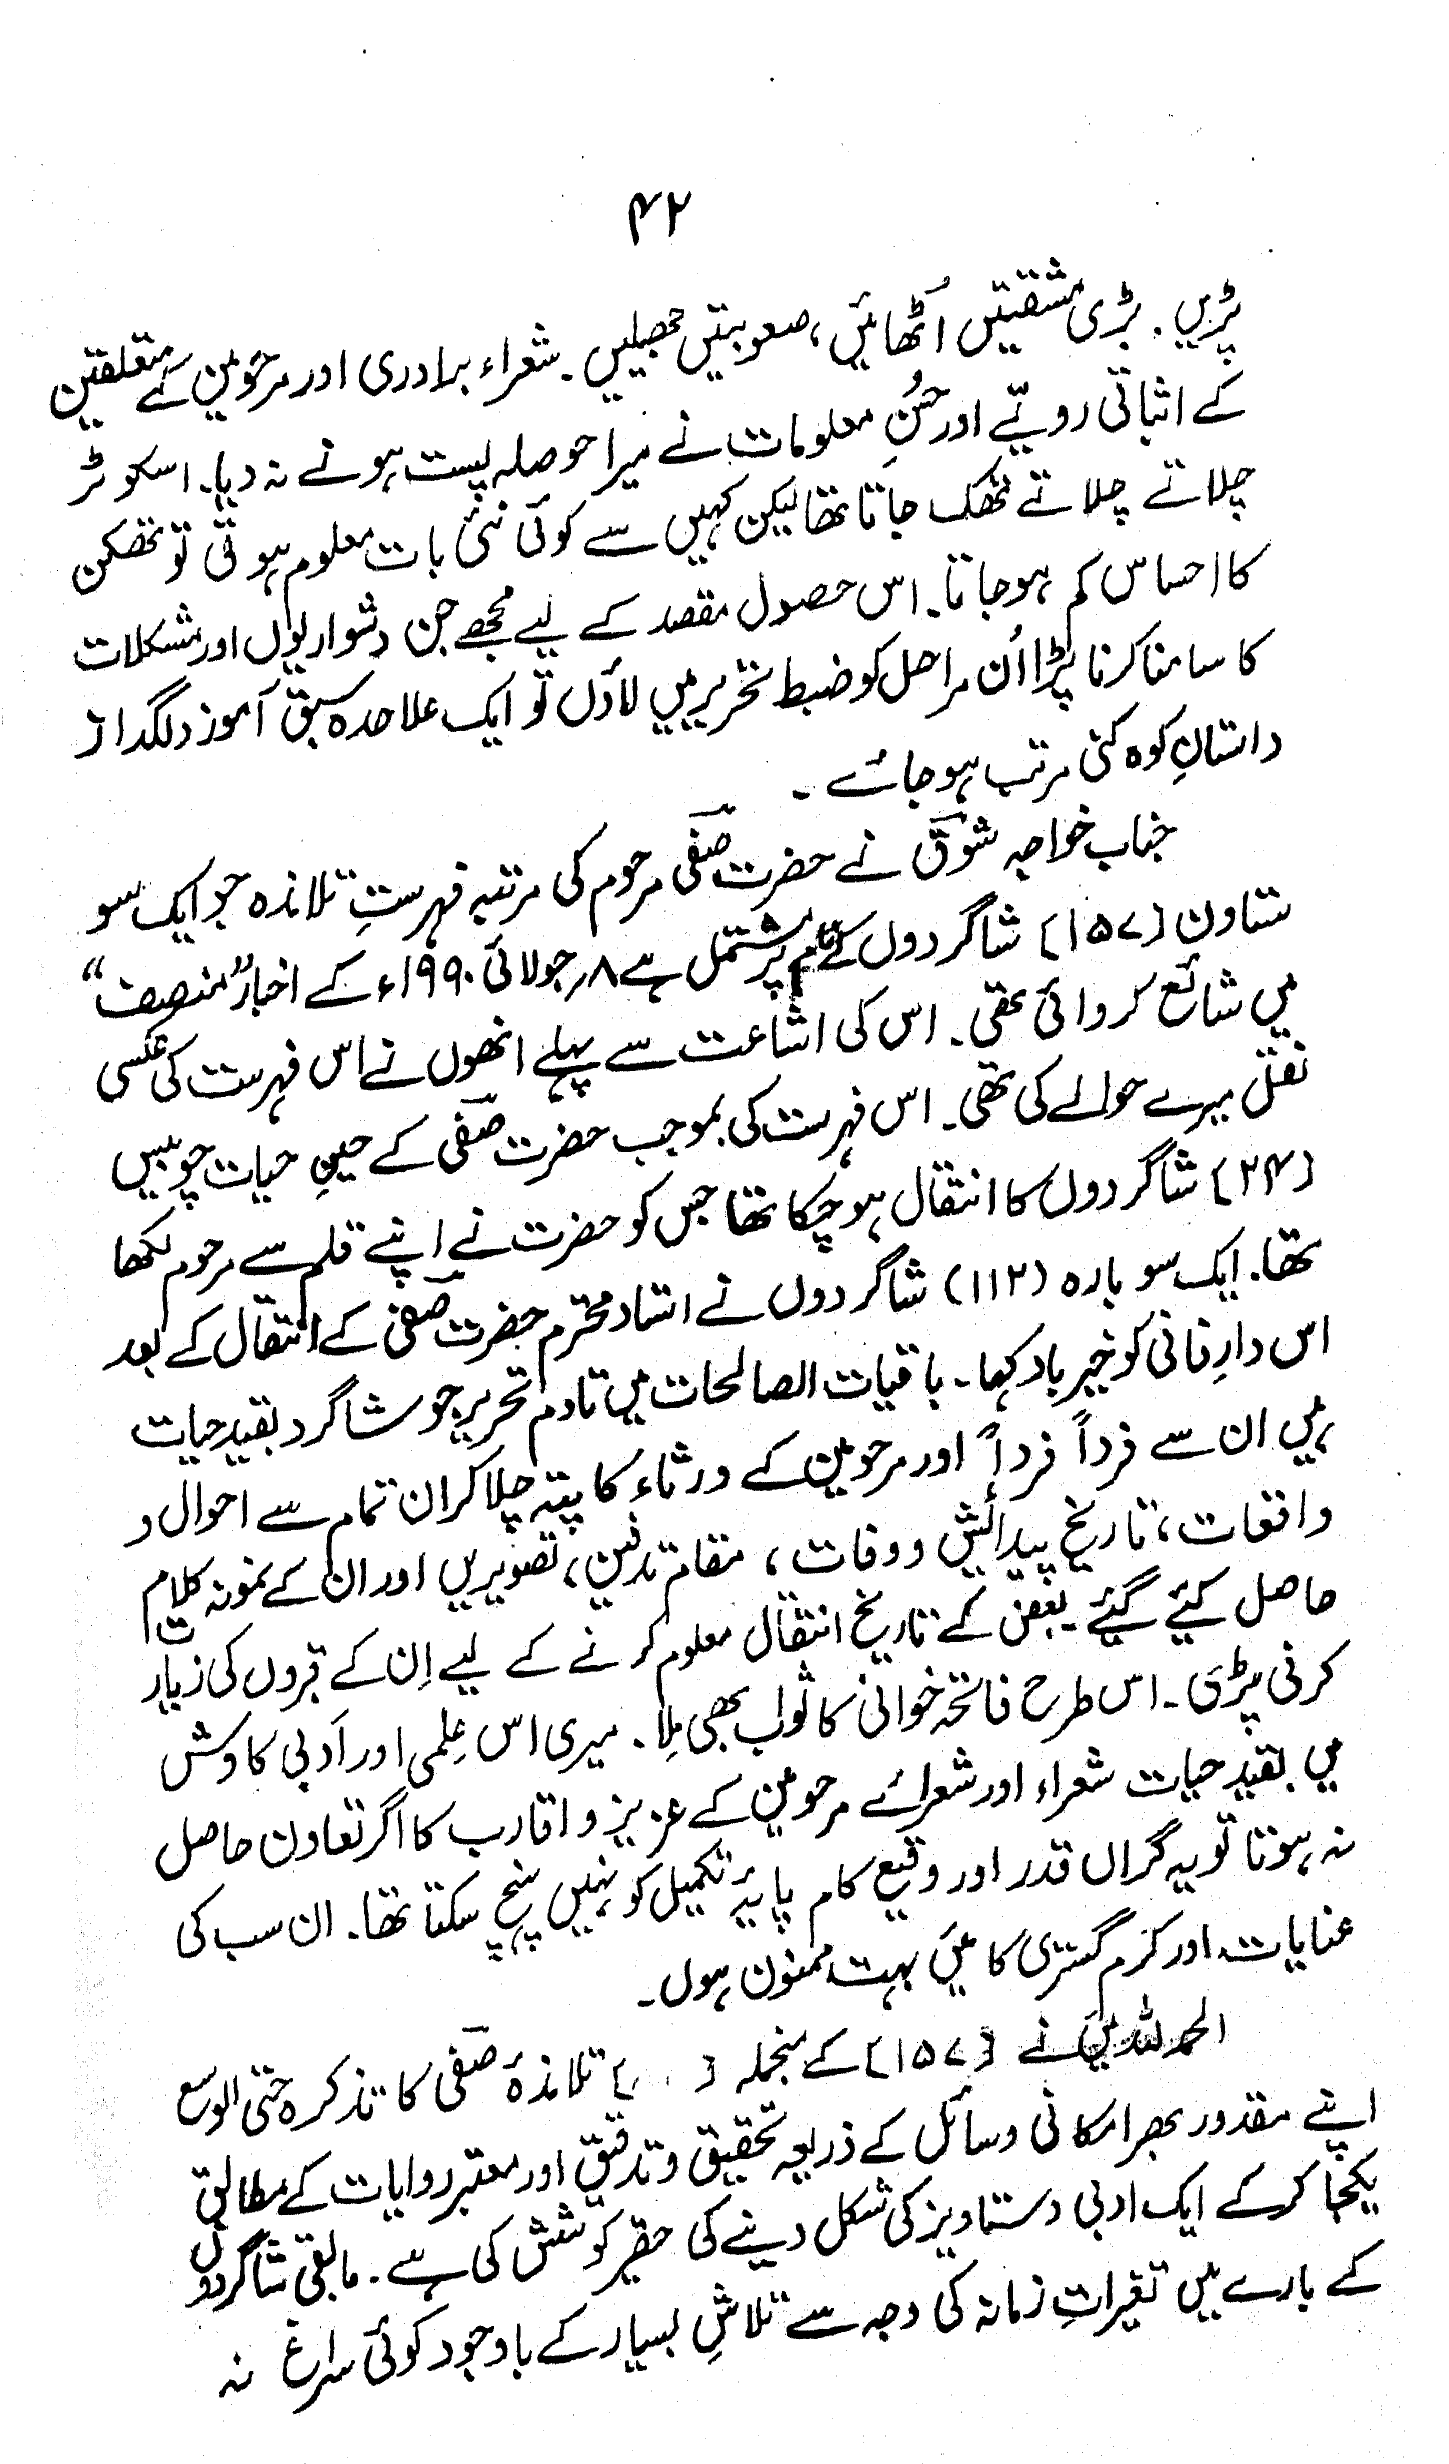 ۴۲
پڑیں ۔ بڑی مشقتیں اُٹھائیں ، صعوبتیں جھیلیں ۔ شعراء برادری اور مرحومین کے متعلقین
کے اثباتی رویّے اور حسُنِ معلومات نے میرا حوصلہ پست ہونے نہ دیا۔ اسکوٹر
چلاتے چلاتے تھک جاتا تھا لیکن کہیں سے کوئی نئی بات معلوم ہوتی تو تھکن
کا احساس کم ہوجاتا۔ اس حصول مقصد کے لیے مجھے جن دشواریوں اور مشکلات
کا سامنا کرنا پڑا اُن مراحل کو ضبط تحریر میں لاؤں تو ایک علاحدہ سبق آموز دلگداز
داستانِ کوہ کنی مرتب ہوجائے ۔
جناب خواجہ شوقؔ نے حضرت صفیؔ مرحوم کی مرتبہ فہرستِ تلامذہ جو ایک سو
ستاون [۱۵۷] شاگردوں کے نام پر مشتمل ہے ۸؍جولائی ۱۹۹۰ء کے اخبار "منصف"
میں شائع کروائی تھی ۔ اس کی اشاعت سے پہلے انھوں نے اس فہرست کی عکسی
نقل میرے حوالے کی تھی ۔ اس فہرست کی بموجب حضرت صفیؔ کے حینِ حیات چوبیس
[۲۴] شاگردوں کا انتقال ہوچکا تھا جس کو حضرت نے اپنے قلم سے مرحوم لکھا
تھا۔ ایک سو بارہ (۱۱۲) شاگردوں نے استاد محترم حضرت صفیؔ کے انتقال کے بعد
اس دارِ فانی کو خیر باد کہا ۔ باقیات الصالحات میں تادم تحریر جو شاگرد بقید حیات
ہیں ان سے فرداً فرداً اور مرحومین کے ورثاء کا پتہ چلا کر ان تمام سے احوال و
واقعات ، تاریخ پیدائش و وفات ، مقام تدفین ، تصویریں اور ان کے نمونہ کلام
حاصل کیئے گیئے ۔ بعض کے تاریخ انتقال معلوم کرنے کے لیے اِن کے قبروں کی زیارت
کرنی پڑی ۔ اس طرح فاتحہ خوانی کا ثواب بھی مِلا ۔ میری اس عِلمی اور اَدبی کاوش
میں بقیدِ حیات شعراء اور شعرائے مرحومین کے عزیز و اقارب کا اگر تعاون حاصل
نہ ہوتا تو یہ گراں قدر اور وقیع کام پایۂ تکمیل کو نہیں پہنچ سکتا تھا ۔ ان سب کی
عنایات اور کرم گستری کا میں بہت ممنون ہوں ۔
الحمدللہ میں نے [۱۵۷] کے منجملہ [ ] تلامذۂ صفیؔ کا تذکرہ حتی الوسع
اپنے مقدور بھر امکانی وسائل کے ذریعہ تحقیق و تدقیق اور معتبر روایات کے مطابق
یکجا کرکے ایک ادبی دستاویز کی شکل دینے کی حقیر کوشش کی ہے ۔ مابقی شاگردوں
کے بارے میں تغیراتِ زمانہ کی وجہ سے تلاشِ بسیار کے باوجود کوئی سراغ نہ